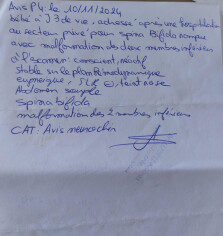 Avis P4 le 10/11/2024
bébé à J3 de vie, adressé après une hospitalisé
au secteur privé pour spina Bifida rompu
avec malformation des deux membres inférieurs
à l'examen conscient, réactif
stable sur le plan hémodynamique
eupneique
Abdomen souple
spina bifida
malformation des 2 membres inférieurs
CAT: Avis neurochir